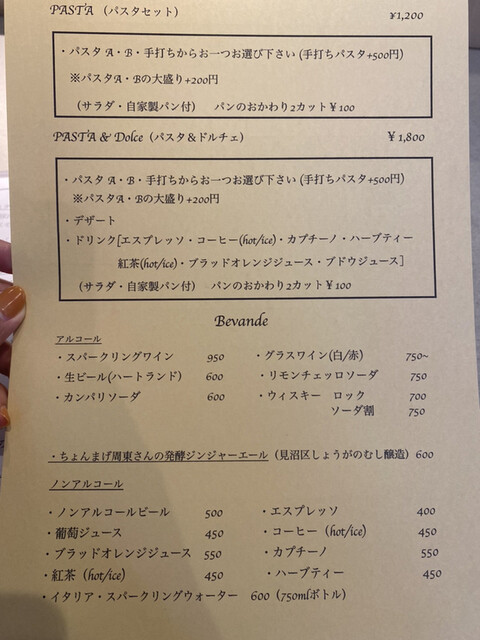 PASTA （パスタセット） ¥1,200
・パスタ A・B・手打ちからお一つお選び下さい (手打ちパスタ+500円)
※パスタA・Bの大盛り+200円
（サラダ・自家製パン付） パンのおかわり2カット￥100
PASTA & Dolce（パスタ＆ドルチェ） ￥1,800
・パスタ A・B・手打ちからお一つお選び下さい (手打ちパスタ+500円)
※パスタA・Bの大盛り+200円
・デザート
・ドリンク[エスプレッソ・コーヒー(hot/ice)・カプチーノ・ハーブティー
紅茶(hot/ice)・ブラッドオレンジジュース・ブドウジュース]
（サラダ・自家製パン付） パンのおかわり2カット￥100
Bevande
アルコール
・スパークリングワイン 950 ・グラスワイン(白/赤) 750~
・生ビール(ハートランド) 600 ・リモンチェッロソーダ 750
・カンパリソーダ 600 ・ウィスキー ロック 700
ソーダ割 750
・ちょんまげ周東さんの発酵ジンジャーエール（見沼区しょうがのむし醸造）600
ノンアルコール
・ノンアルコールビール 500 ・エスプレッソ 400
・葡萄ジュース 450 ・コーヒー（hot/ice) 450
・ブラッドオレンジジュース 550 ・カプチーノ 550
・紅茶（hot/ice) 450 ・ハーブティー 450
・イタリア・スパークリングウォーター 600（750mlボトル）